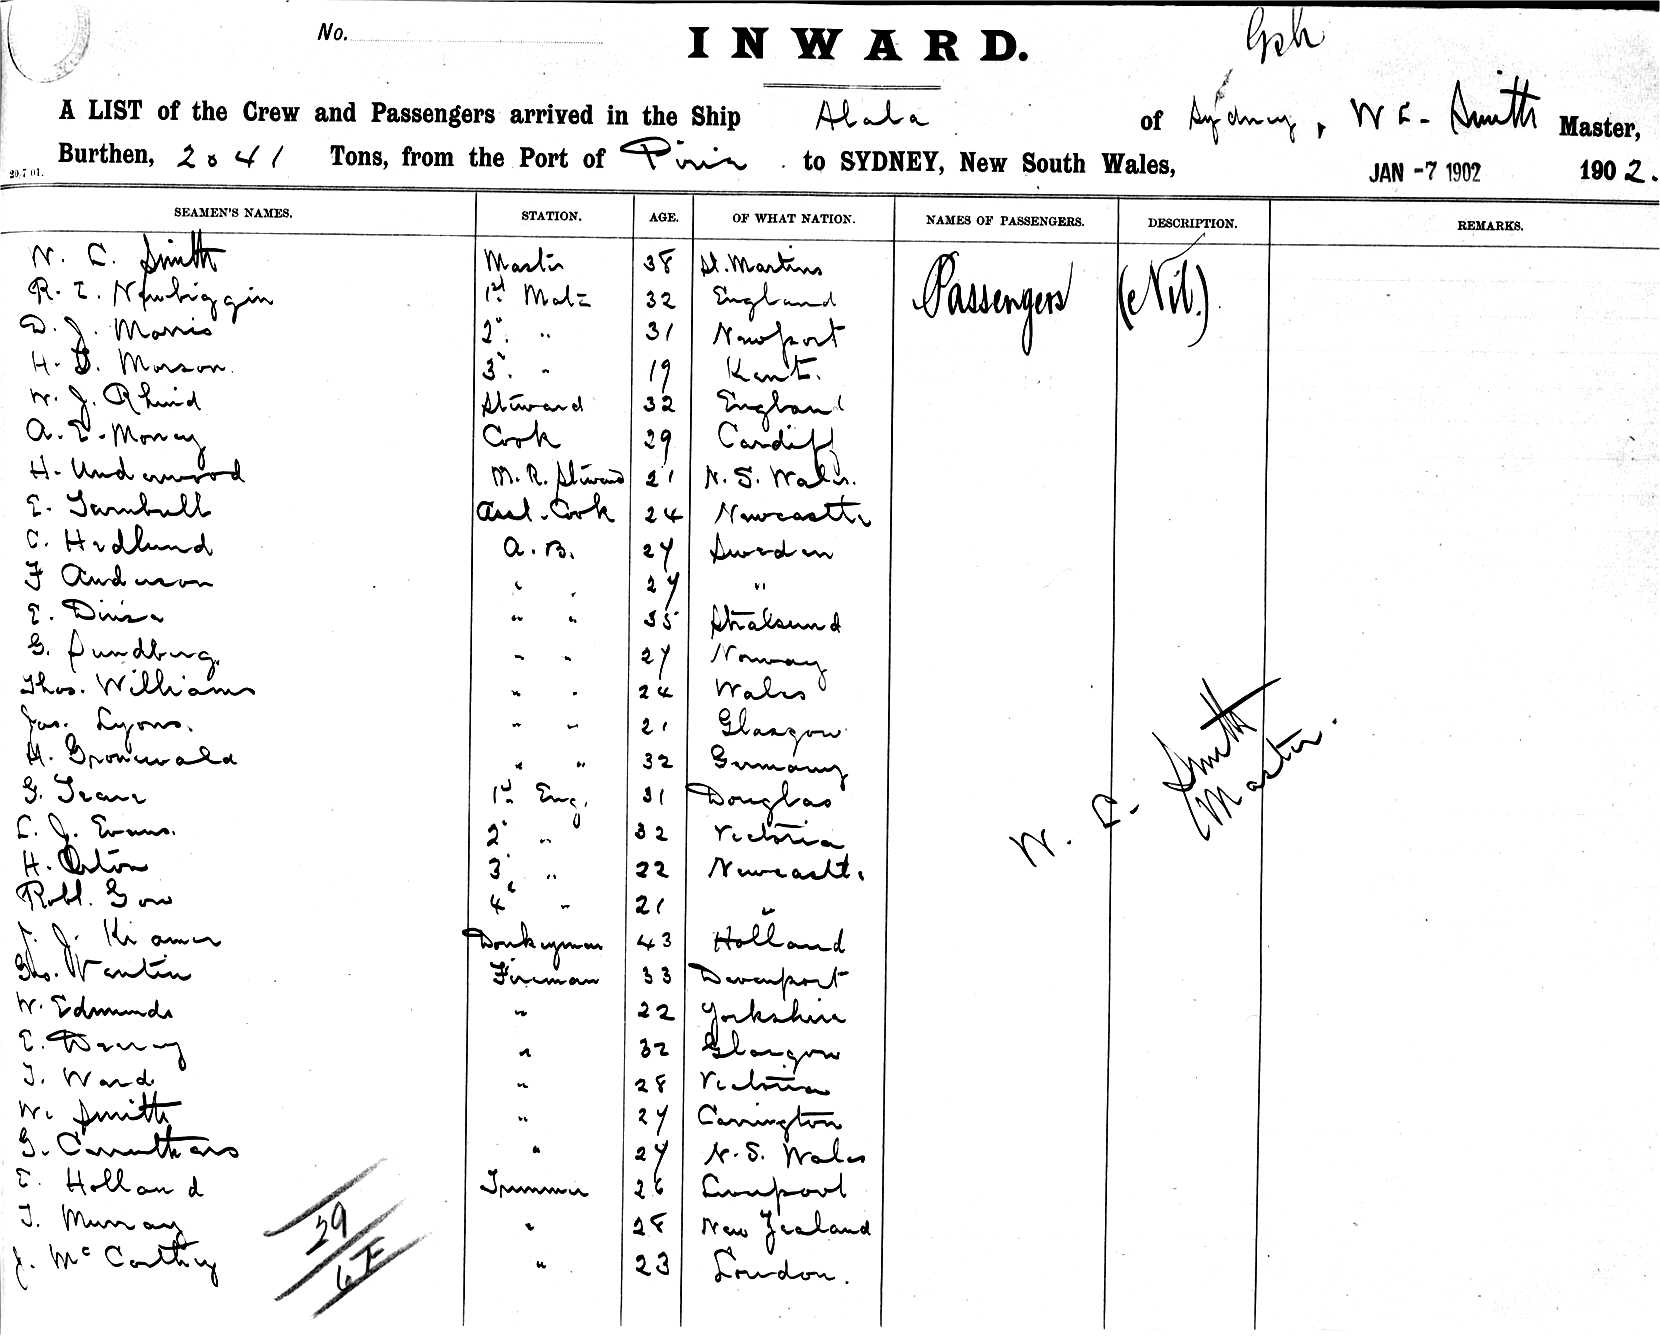 No.
INWARD.
A LIST of the Crew and Passengers arrived in the Ship Alala of Sydney, W C. Smith Master,
Burthen, 2041 Tons, from the Port of Pirie to SYDNEY, New South Wales, JAN -7 1902 1902.
29.7.01.
SEAMEN'S NAMES. STATION. AGE. OF WHAT NATION. NAMES OF PASSENGERS. DESCRIPTION. REMARKS.
W. C. Smith Master 38 St. Martins Passengers (Nil.)
R. E. Newbiggin 1st Mate 32 England
D. J. Morris 2" " 31 Newport
H. D. Morson. 3" " 19 Kent.
W. J. Steward 32 England
A. E. Cook 29 Cardiff
H. Underwood M. R. Steward 21 N. S. Wales.
E. Turnbull Asst. Cook 24 Newcastle
C. Hedlund A. B. 27 Sweden
F Anderson " " 27 "
E. " " 35 Stralsund
G. Sundberg. " " 27 Norway
Thos. Williams " " 24 Wales
Jas. Lyons. " " 21 Glasgow
H. Gronewald " " 32 Germany
G. 1st Eng. 31 Douglas
C. J. Evans. 2" " 32 Victoria
H. Orton 3" " 22 Newcastle
Robt. Gow 4" " 21 "
J. Kramer Donkeyman 43 Holland
Fireman 33 Davenport
W. Edmunds " 22 Yorkshire
E. " 32 Glasgow
T. Ward " 28 Victoria
W. Smith " 27 Carrington
G. Carruthers " 27 N. S. Wales
E. Holland Trimmer 26 Liverpool
T. Murray " 28 New Zealand
J. McCarthy " 23 London.
W. C. Smith
Master.
29